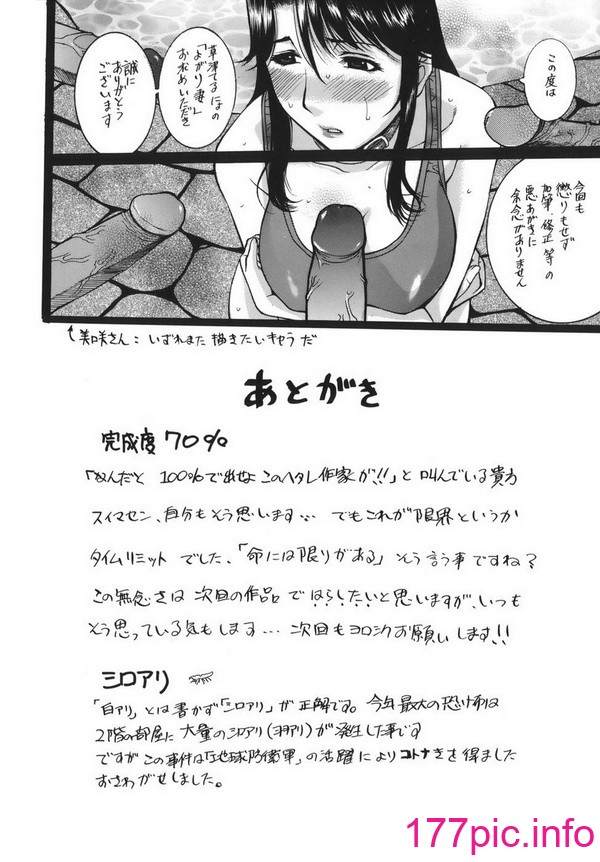 この度は
草津てるにょの
「よがり妻」
お求めいただき
誠に
ありがとう
ございます
今回も
懲りもせず
加筆・修正等の
悪あがきに
余念がありません
美咲さん：いずれまた描きたいキャラだ
あとがき
完成度70%
「なんだと 100%で出せよこのヘタレ作家が!!」と叫んでいる貴方
スイマセン、自分もそう思います… でもこれが限界というか
タイムリミットでした、「命には限りがある」そう言う事ですね？
この無念さは次回の作品ではらしたいと思いますが、いつも
そう思っている気もします…次回もヨロシクお願いします!!
シロアリ
「白アリ」とは書かず「シロアリ」が正解です。今年最大の恐怖は
2階の部屋に大量のシロアリ(羽アリ)が発生した事です
ですがこの事件は「地球防衛軍」の活躍によりコトナキを得ました
おさわがせしました。
177pic.info